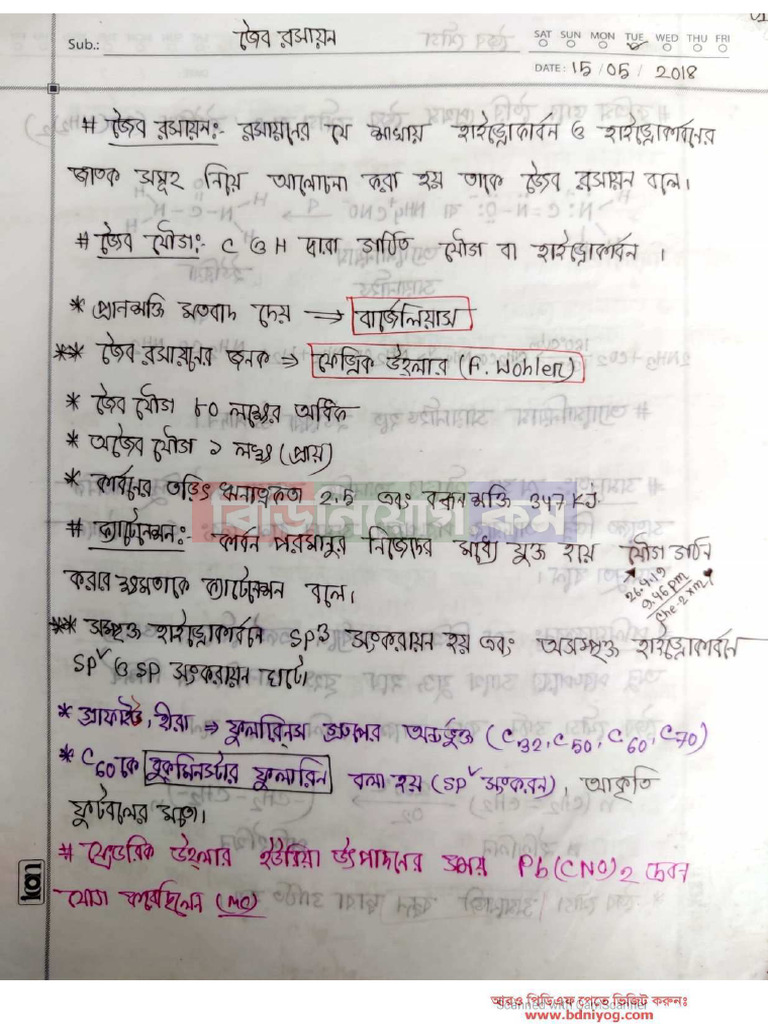 Sub.: জৈব রসায়ন
SAT SUN MON TUE WED THU FRI
DATE: 15/05/2018
# জৈব রসায়ন:- রসায়নের যে শাখায় হাইড্রোকার্বন ও হাইড্রোকার্বনের
জাতক সমূহ নিয়ে আলোচনা করা হয় তাকে জৈব রসায়ন বলে।
# জৈব যৌগ:- C ও H দ্বারা গঠিত যৌগ বা হাইড্রোকার্বন।
* প্রানশক্তি মতবাদ দেয় → বার্জেলিয়াস
** জৈব রসায়নের জনক ⇒ ফ্রেড্রিক উইলার (F. Wohler)
* জৈব যৌগ ৮০ লক্ষের অধিক
* অজৈব যৌগ ১ লক্ষ (প্রায়)
* কার্বনের তড়িৎ ঋনাত্নকতা 2.5 এবং বন্ধন শক্তি 347 kJ.
বিডিনিয়োগ.কম
# ক্যাটেনেশন:- কার্বন পরমানুর নিজেদের মধ্যে যুক্ত হয়ে যৌগ গঠন
করার ক্ষমতাকে ক্যাটেনেশন বলে।
26.4.19
9.46 pm
che-2 xm
** সম্পৃক্ত হাইড্রোকার্বনে SP³ সংকরায়ন হয় এবং অসম্পৃক্ত হাইড্রোকার্বনে
SP² ও SP সংকরায়ন ঘটে।
* গ্রাফাইট, হীরা ⇒ ফুলারিনস গ্রুপের অন্তর্ভুক্ত (C32, C50, C60, C70)
* C60 কে বুকমিনস্টার ফুলারিন বলা হয় (SP² সংকরন), আকৃতি
ফুটবলের মতো।
# ফ্রেডরিক উইলার ইউরিয়া উৎপাদনের সময় Pb(CNO)2 লেবন
যোগ করেছিলেন (MC)
আরও পিডিএফ পেতে ভিজিট করুনঃ
Scanned with CamScanner
www.bdniyog.com